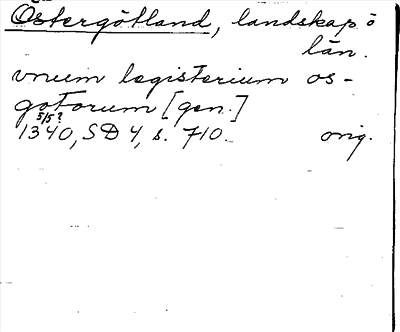 Östergötland, landskap o
län.
vnum legisterium os-
gotorum [gen.]
5/5?
1340, SD 4, s. 710. orig.